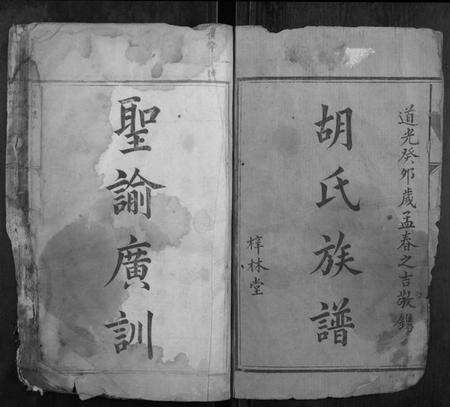 道光癸夘歲孟春之吉敬鐫
胡氏族譜
梓林堂
聖諭廣訓